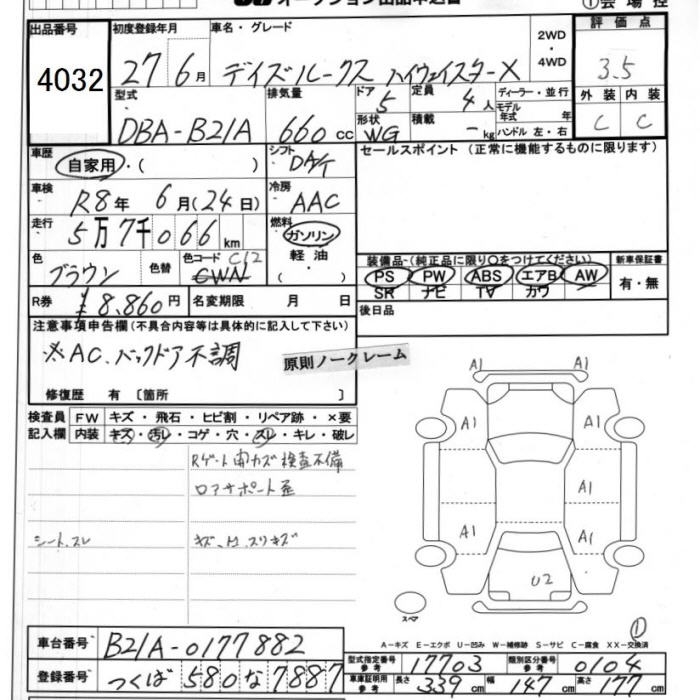 オークション出品申込書 ①会場控
出品番号 4032
初度登録年月 27年6月
車名・グレード デイズルークス ハイウェイスターX
2WD・4WD
評価点 3.5
外装 C 内装 C
型式 DBA-B21A
排気量 660cc
ドア 5 定員 4人
形状 WG 積載 -kg
ディーラー・並行
モデル年式 年
ハンドル 左・右
車歴 自家用・( )
シフト DAT
セールスポイント (正常に機能するものに限ります)
車検 R8年 6月(24日)
冷房 AAC
走行 5万7千066km
燃料 ガソリン・軽油・( )
色 ブラウン 色替 色コード C12 CWN
装備品-(純正品に限り○をつけてください)
PS PW ABS エアB AW
SR ナビ TV カワ
新車保証書 有・無
R券 ¥8,860円 名変期限 月 日
後日品
注意事項申告欄(不具合内容等は具体的に記入して下さい)
※AC、バックドア不調
原則ノークレーム
修復歴 有 〔箇所 〕
検査員記入欄
FW キズ・飛石・ヒビ割・リペア跡・×要
内装 キズ・汚レ・コゲ・穴・スレ・キレ・破レ
Rゲート開カズ 検査不備
ロアサポート歪
シート、スレ
キズ、凹、スリキズ
A1 A1
A1 A1
A1
A1 A1
U2
スペア
①
A-キズ E-エクボ U-凹み W-補修跡 S-サビ C-腐食 XX-交換済
車台番号 B21A-0177882
登録番号 つくば 580 な 7887
型式指定番号 参考 17703 類別区分番号 参考 0104
車庫証明用 参考 長さ 339cm 幅 147cm 高さ 177cm